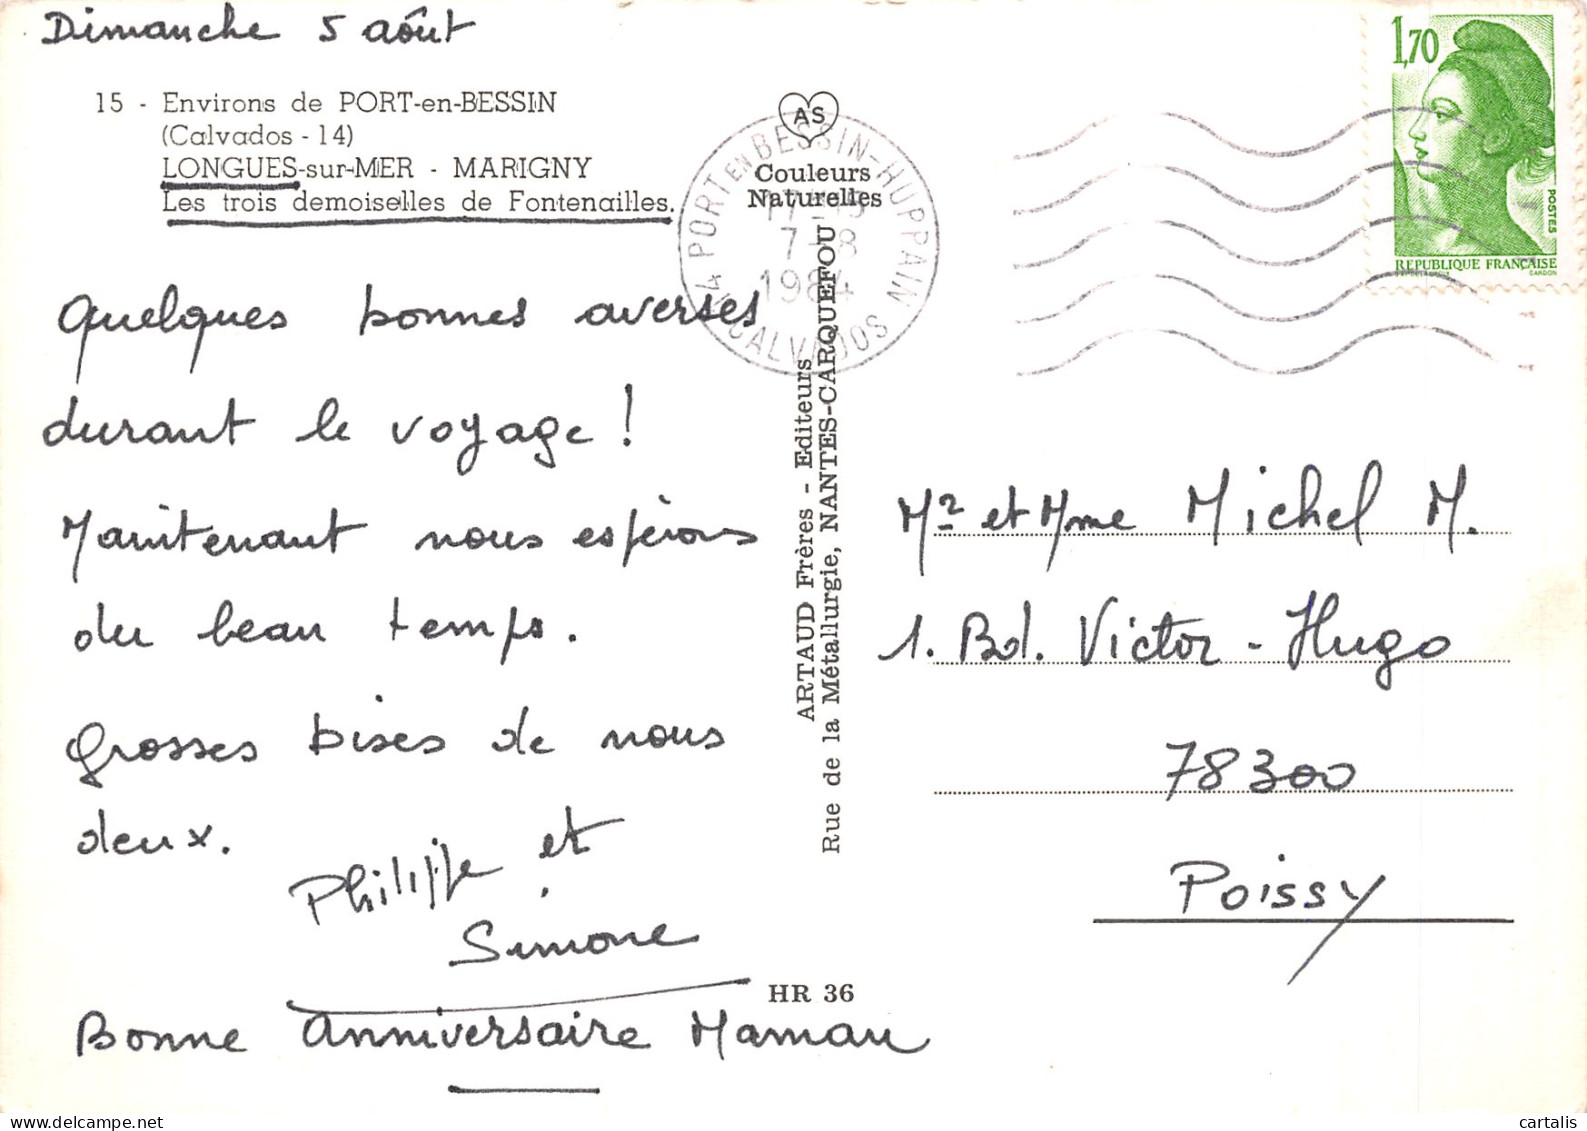 Dimanche 5 août
15 - Environs de PORT-en-BESSIN
(Calvados - 14)
LONGUES-sur-MER - MARIGNY
Les trois demoiselles de Fontenailles.
Quelques bonnes averses
durant le voyage !
Maintenant nous espérons
du beau temps.
Grosses bises de nous
deux.
Philippe et
Simone
Bonne anniversaire Maman
AS
Couleurs
Naturelles
14 PORT EN BESSIN-HUPPAIN
7-8
1984
CALVADOS
ARTAUD Frères - Editeurs
Rue de la Métallurgie, NANTES-CARQUEFOU
HR 36
1,70
POSTES
REPUBLIQUE FRANÇAISE
GANDON
Mr et Mme Michel M.
1. Bd. Victor-Hugo
78300
Poissy
cartalis
delcampe.net